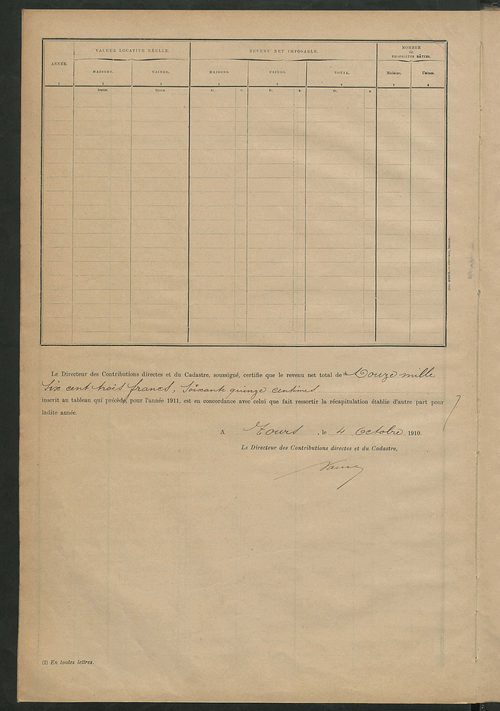 ANNÉE.
VALEUR LOCATIVE RÉELLE.
REVENU NET IMPOSABLE.
NOMBRE
DES
PROPRIÉTÉS BÂTIES.
MAISONS.
USINES.
MAISONS.
USINES.
TOTAL.
Maisons.
Usines.
1 2 3 4 5 6 7 8
francs.
francs.
fr. c.
fr. c.
fr. c.
Le Directeur des Contributions directes et du Cadastre, soussigné, certifie que le revenu net total de Douze mille
six cent trois francs, soixante quinze centimes
inscrit au tableau qui précède, pour l'année 1911, est en concordance avec celui que fait ressortir la récapitulation établie d'autre part pour
ladite année.
A Tours, le 4 Octobre 1910.
Le Directeur des Contributions directes et du Cadastre,
(1) En toutes lettres.